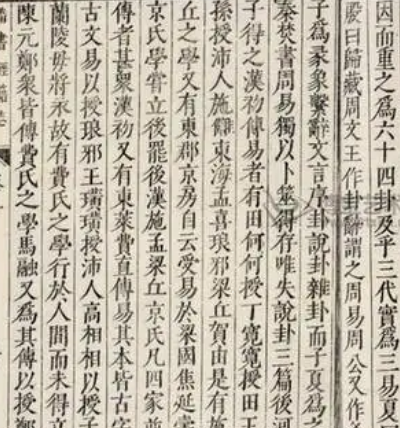 因而重之爲六十四卦及乎三代實爲三易夏
殷曰歸藏周文王作卦辭謂之周易周公又作
子爲彖象繫辭文言序卦說卦雜卦而子夏爲之
秦焚書周易獨以卜筮得存唯失說卦三篇後河
子得之漢初傳易者有田何何授丁寬寬授田王
孫授沛人施讎東海孟喜琅邪梁丘賀由是有施
丘之學又有東郡京房自云受易於梁國焦延
京氏學嘗立後罷後漢施孟梁丘京氏凡四家並
傳者甚衆漢初又有東萊費直傳易其本皆古字
古文易以授琅邪王璜璜授沛人高相相以授子
蘭陵毋將永故有費氏之學行於人間而未得立
陳元鄭衆皆傳費氏之學馬融又爲其傳以授鄭
隋書經籍志